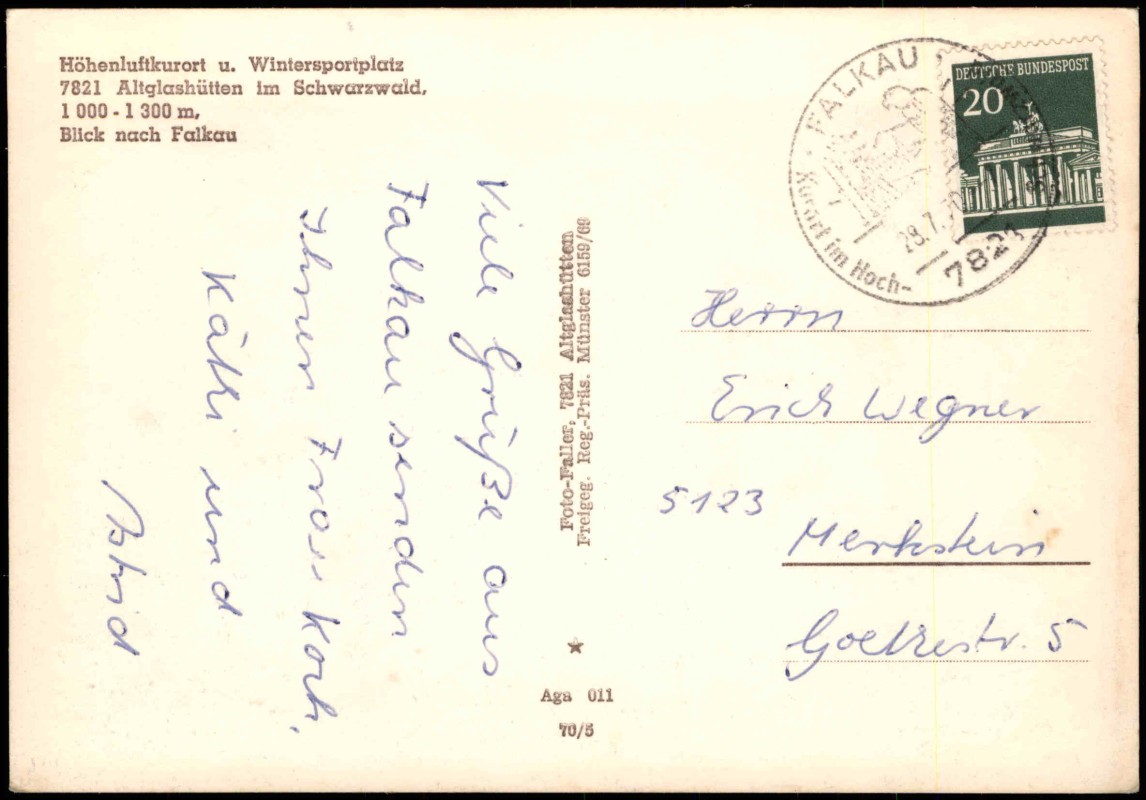 Höhenluftkurort u. Wintersportplatz
7821 Altglashütten im Schwarzwald,
1 000 - 1 300 m,
Blick nach Falkau
Viele Grüße aus
Falkau senden
Ihnen Frau Koch,
Käthi und
Astrid
Foto-Faller, 7821 Altglashütten
Freigeg. Reg.-Präs. Münster 6159/69
Aga 011
70/5
FALKAU
Kurort im Hoch-
28.7.70
7821
DEUTSCHE BUNDESPOST
20
Herrn
Erich Wegner
5123
Merkstein
Goethestr. 5